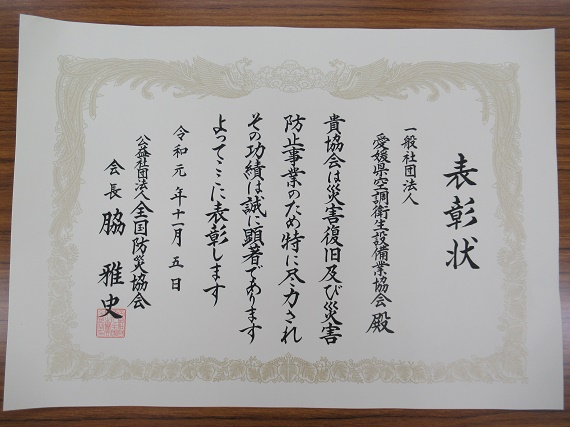 表彰状
一般社団法人
愛媛県空調衛生設備業協会 殿
貴協会は災害復旧及び災害
防止事業のため特に尽力され
その功績は誠に顕著であります
よってここに表彰します
令和元年十一月五日
公益社団法人全国防災協会
会長 脇 雅史